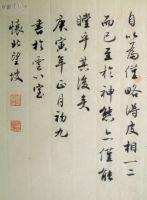 自以为仅略得皮相一二
而已至於神態上僅能
瞠乎其後矣
庚寅年正月初九
書於雲心室
懷北望坡